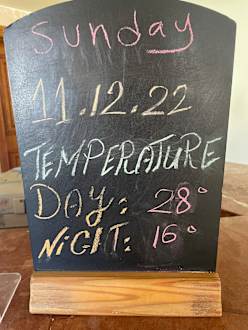 Sunday
11.12.22
TEMPERATURE
DAY: 28°
NiGHT: 16°